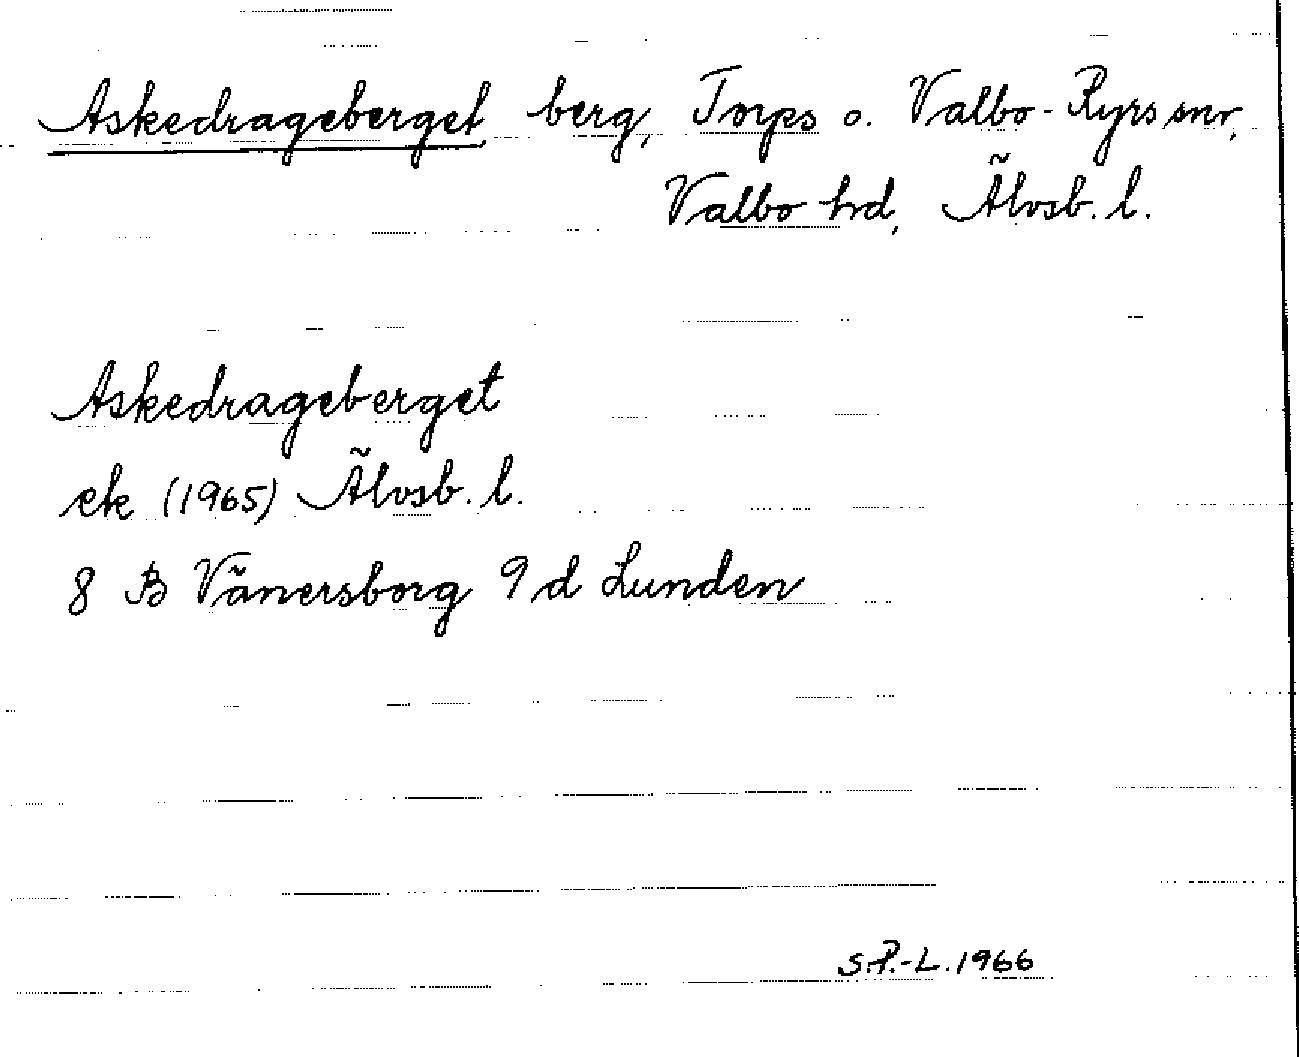 Askedrageberget, berg, Torps o. Valbo-Ryrs snr,
Valbo hd, Älvsb. l.
Askedrageberget
ek (1965) Älvsb. l.
8 B Vänersborg 9 d Lunden
S.P.-L. 1966